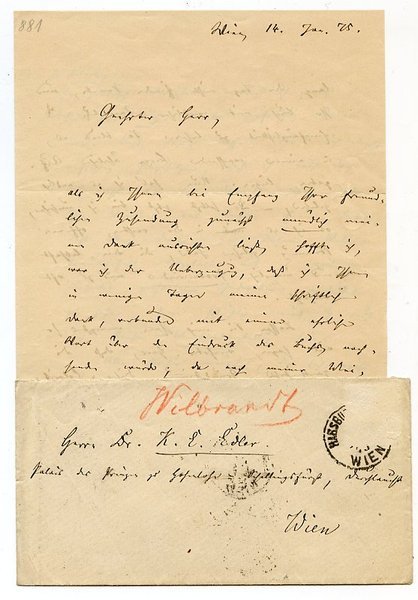 881
Wien, 14. Jan. 75.
Geehrter Herr,
als ich Ihnen bei Empfang Ihrer freund-
lichen Zusendung zunächst mündlich mei-
nen Dank ausrichten ließ, hoffte ich,
war ich der Ueberzeugung, daß ich Ihnen
in wenigen Tagen meinen schriftlichen
Dank, verbunden mit einem ehrlichen
Wort über den Eindruck des Buchs, nach-
senden würde; da nach meiner
Wilbrandt
Herrn Dr. K. E. Edler.
Palais des Prinzen zu Hohenlohe Schillingsfürst, Durchlaucht
Wien
WIEN